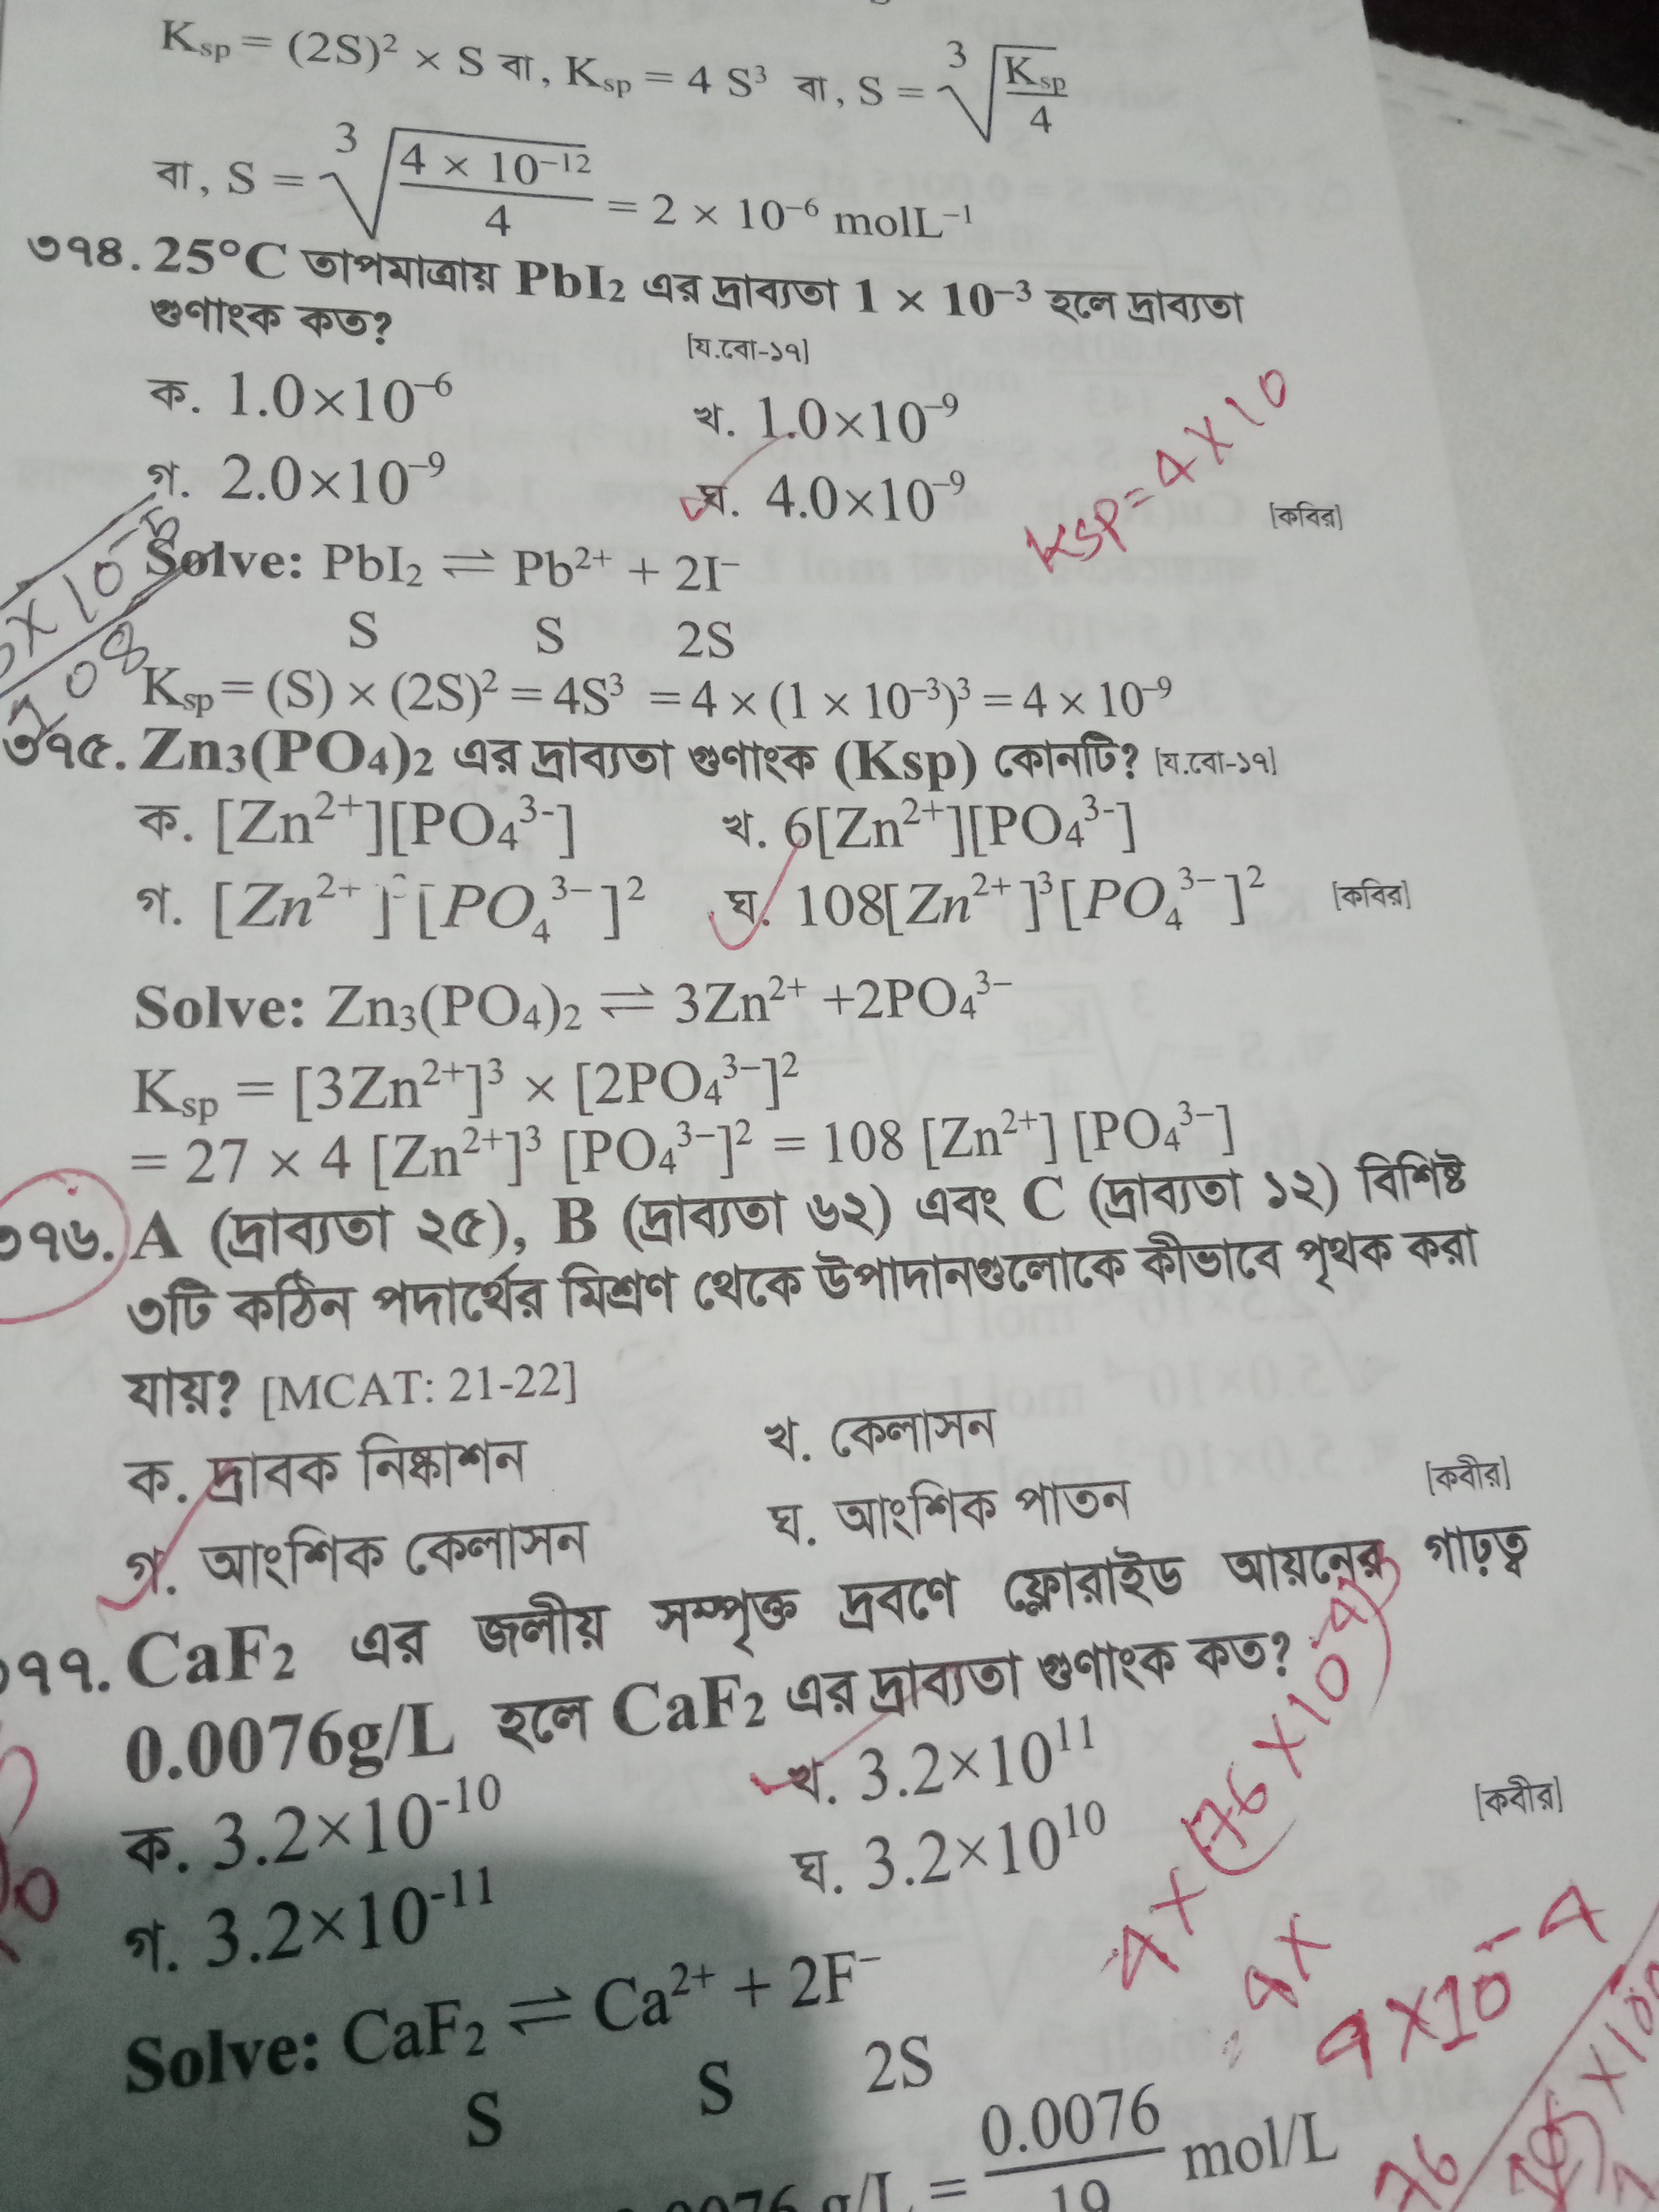 Ksp = (2S)² × S বা, Ksp = 4 S³ বা, S = ∛(Ksp/4)
বা, S = ∛(4 × 10⁻¹²/4) = 2 × 10⁻⁶ molL⁻¹
৩৭৪. 25°C তাপমাত্রায় PbI₂ এর দ্রাব্যতা 1 × 10⁻³ হলে দ্রাব্যতা
গুণাংক কত? [য.বো-১৭]
ক. 1.0×10⁻⁶ খ. 1.0×10⁻⁹
গ. 2.0×10⁻⁹ ঘ. 4.0×10⁻⁹ [কবির]
KSP = 4 × 10
Solve: PbI₂ ⇌ Pb²⁺ + 2I⁻
S S 2S
Ksp = (S) × (2S)² = 4S³ = 4 × (1 × 10⁻³)³ = 4 × 10⁻⁹
৩৭৫. Zn₃(PO₄)₂ এর দ্রাব্যতা গুণাংক (Ksp) কোনটি? [য.বো-১৭]
ক. [Zn²⁺][PO₄³⁻] খ. 6[Zn²⁺][PO₄³⁻]
গ. [Zn²⁺] [PO₄³⁻]² ঘ. 108[Zn²⁺]³[PO₄³⁻]² [কবির]
Solve: Zn₃(PO₄)₂ ⇌ 3Zn²⁺ +2PO₄³⁻
Ksp = [3Zn²⁺]³ × [2PO₄³⁻]²
= 27 × 4 [Zn²⁺]³ [PO₄³⁻]² = 108 [Zn²⁺] [PO₄³⁻]
৩৭৬. A (দ্রাব্যতা ২৫), B (দ্রাব্যতা ৬২) এবং C (দ্রাব্যতা ১২) বিশিষ্ট
৩টি কঠিন পদার্থের মিশ্রণ থেকে উপাদানগুলোকে কীভাবে পৃথক করা
যায়? [MCAT: 21-22]
ক. দ্রাবক নিষ্কাশন খ. কেলাসন
গ. আংশিক কেলাসন ঘ. আংশিক পাতন [কবীর]
৩৭৭. CaF₂ এর জলীয় সম্পৃক্ত দ্রবণে ফ্লোরাইড আয়নের গাঢ়ত্ব
0.0076g/L হলে CaF₂ এর দ্রাব্যতা গুণাংক কত?
ক. 3.2×10⁻¹⁰ খ. 3.2×10¹¹
গ. 3.2×10⁻¹¹ ঘ. 3.2×10¹⁰ [কবীর]
4 × (76 × 10
4 ×
9 × 10⁻⁴
76
Solve: CaF₂ ⇌ Ca²⁺ + 2F⁻
S S 2S
0076 g/L = 0.0076/19 mol/L